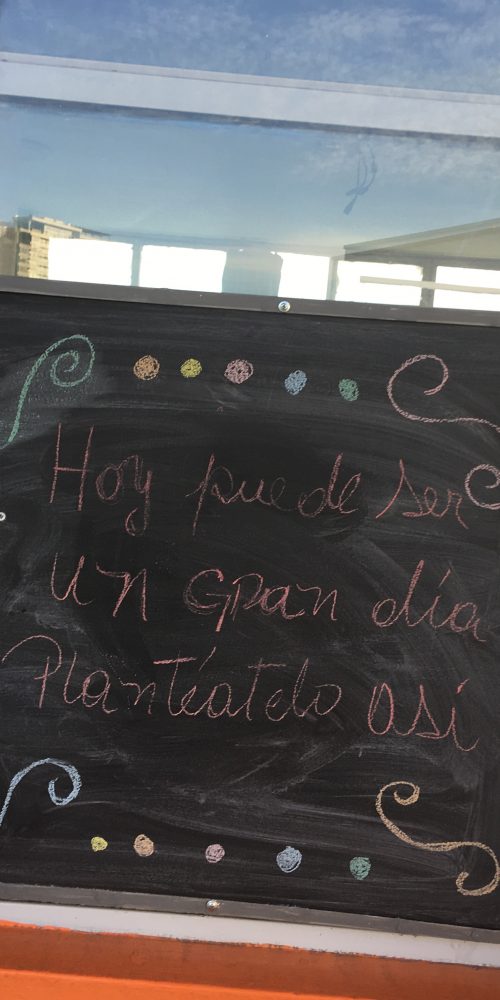 Hoy puede ser
un gran día
Plantéatelo así